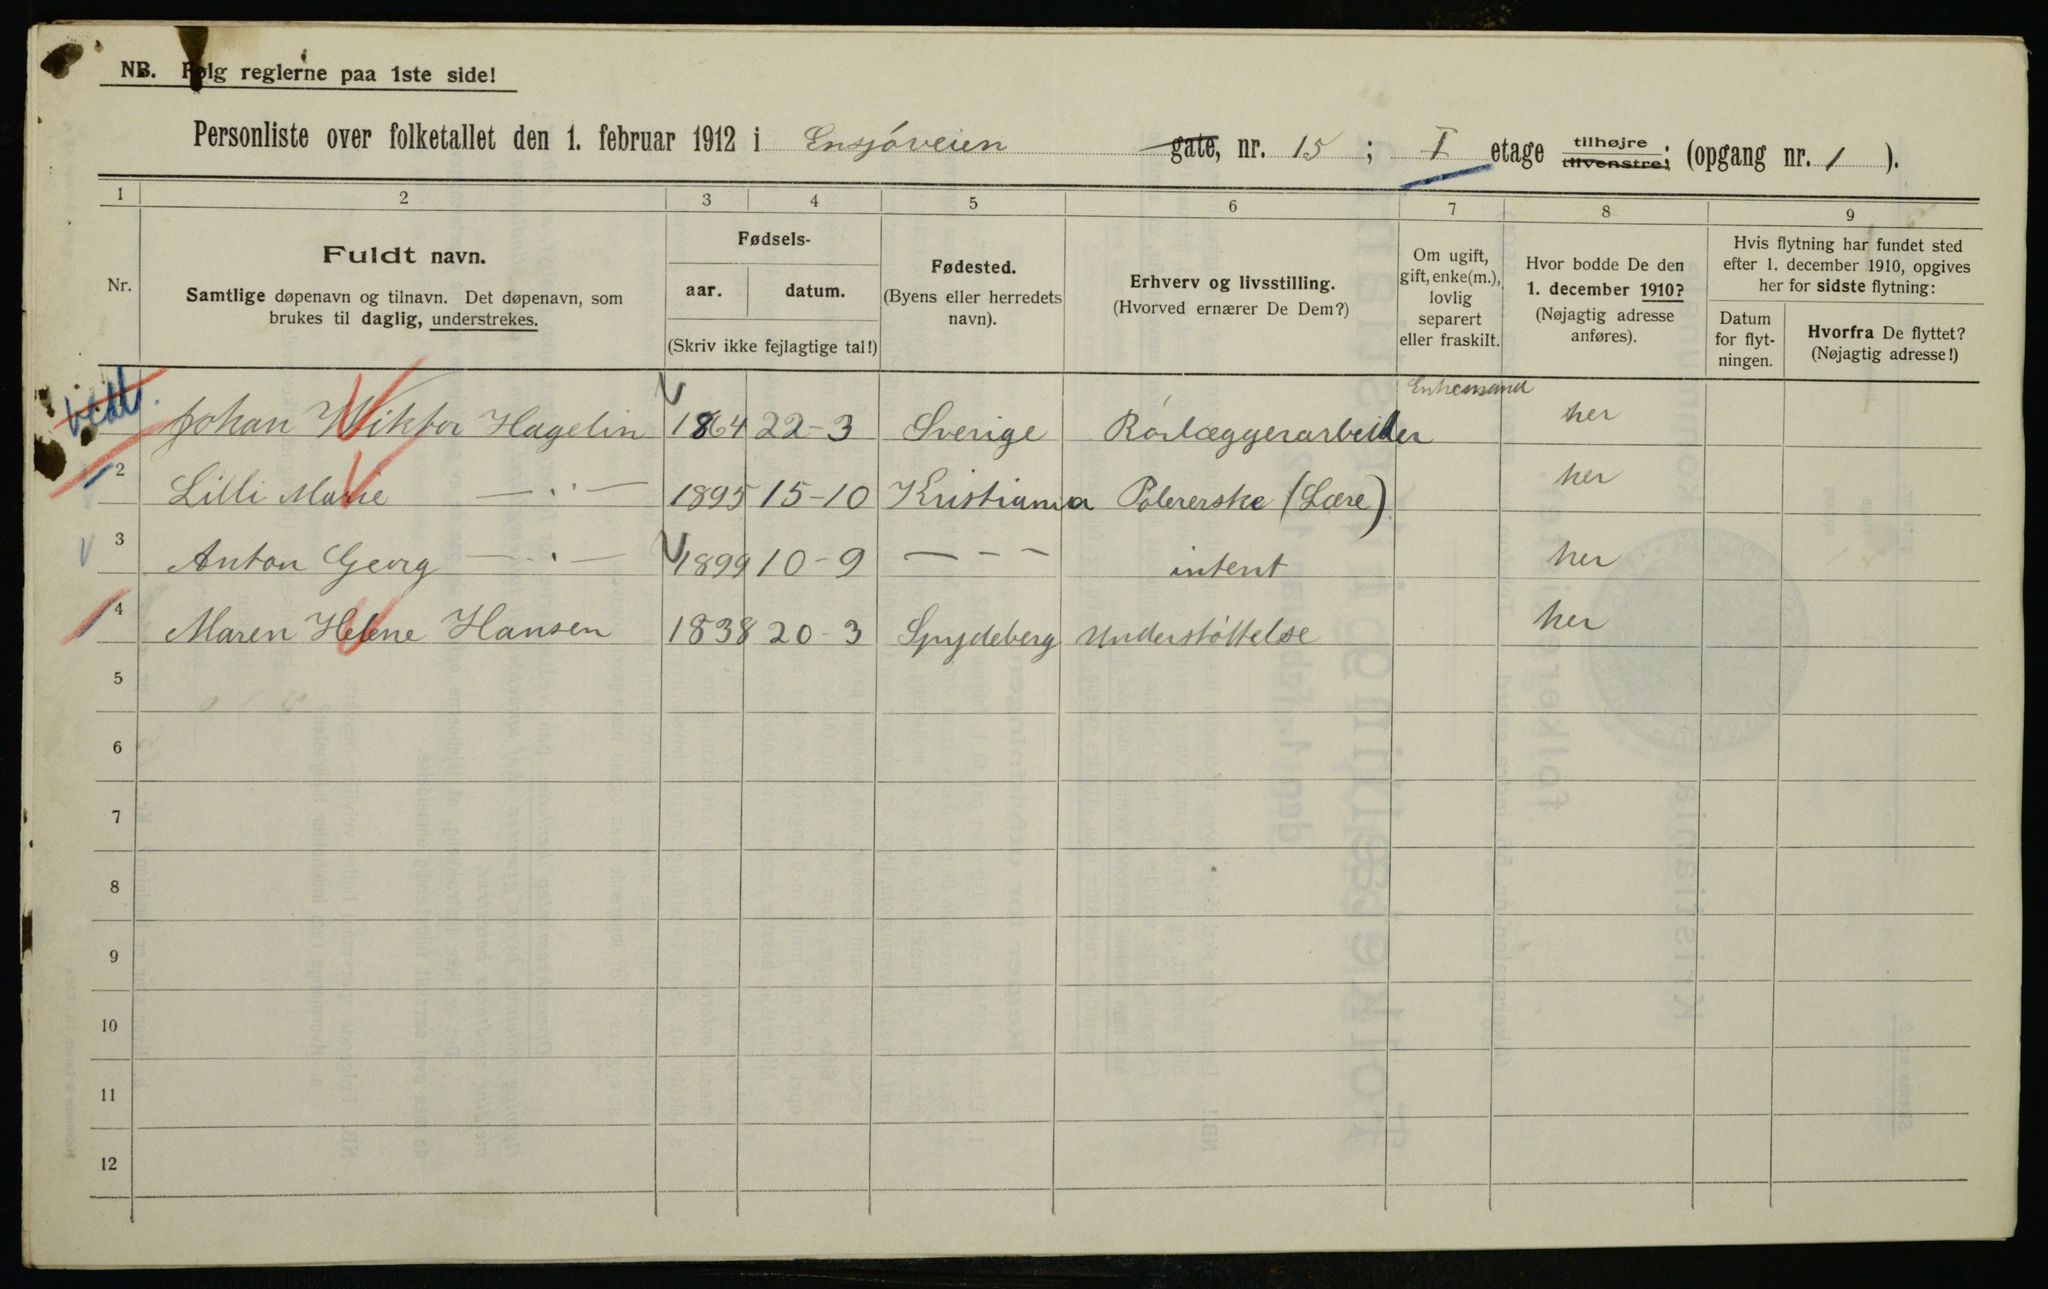 NB. Følg reglerne paa 1ste side!
Personliste over folketallet den 1. februar 1912 i Ensjøveien gate, nr. 15 ; I etage tilhøjre tilvenstre; (opgang nr. 1 ).
1 2 3 4 5 6 7 8 9
Nr.
Fuldt navn.
Samtlige døpenavn og tilnavn. Det døpenavn, som
brukes til daglig, understrekes.
Fødsels-
aar. datum.
(Skriv ikke fejlagtige tal!)
Fødested.
(Byens eller herredets
navn).
Erhverv og livsstilling.
(Hvorved ernærer De Dem?)
Om ugift,
gift, enke(m.),
lovlig
separert
eller fraskilt.
Hvor bodde De den
1. december 1910?
(Nøjagtig adresse
anføres).
Hvis flytning har fundet sted
efter 1. december 1910, opgives
her for sidste flytning:
Datum
for flyt-
ningen.
Hvorfra De flyttet?
(Nøjagtig adresse!)
Johan Wiktor Hagelin 1864 22-3 Sverige Rørlæggerarbeider Enkemand her
2 Lilli Marie —"— 1895 15-10 Kristiania Polererske (Lære) her
3 Anton Georg —"— 1899 10-9 — — — intent her
4 Maren Helene Hansen 1838 20-3 Spydeberg Understøttelse her
5
6
7
8
9
10
11
12